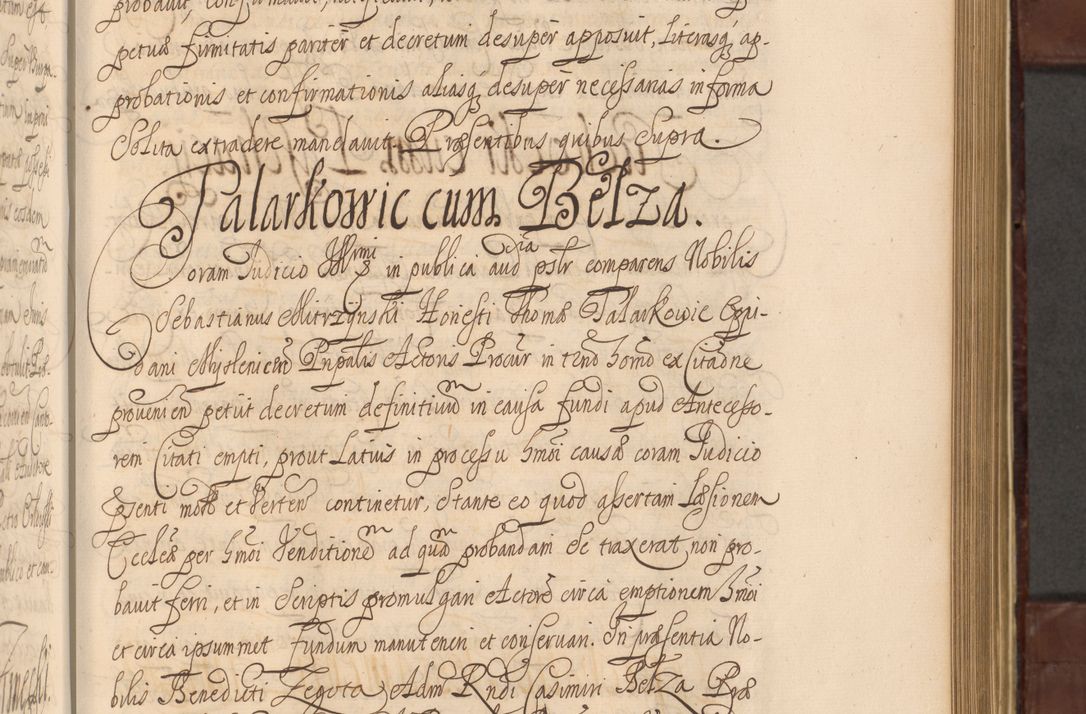 probavit, confirmavit,
petuæ firmitatis pariter et decretum desuper apposuit, literasq; ap-
probationis et confirmationis aliasq; desuper necessarias in forma
solita extradere mandavit. Præsentibus quibus supra.
Talarkowic cum Belza.
Coram Judicio in publica audria pntr comparens Nobilis
Sebastianus Mitrzynski Honesti Thomæ Talarkowic Oppi-
dani Myslenicen Pnpalis Actoris Procur in teno homo ex Citaone
provenien petiit decretum definitivum in causa fundi apud Antecesso-
rem Citati empti, prout Latius in processu hmoi causæ coram Judicio
psenti motæ et verten continetur, stante eo quod assertam Læsionem
Eccleæ per hmoi Venditionem ad quam probandam se traxerat, non pro-
bavit ferri, et in scriptis promulgari Actorem circa emptionem hmoi
et circa ipsummet Fundum manuteneri et conservari. In præsentia No-
bilis Benedicti Zegota Adm Rndi Casimiri Belza Præ